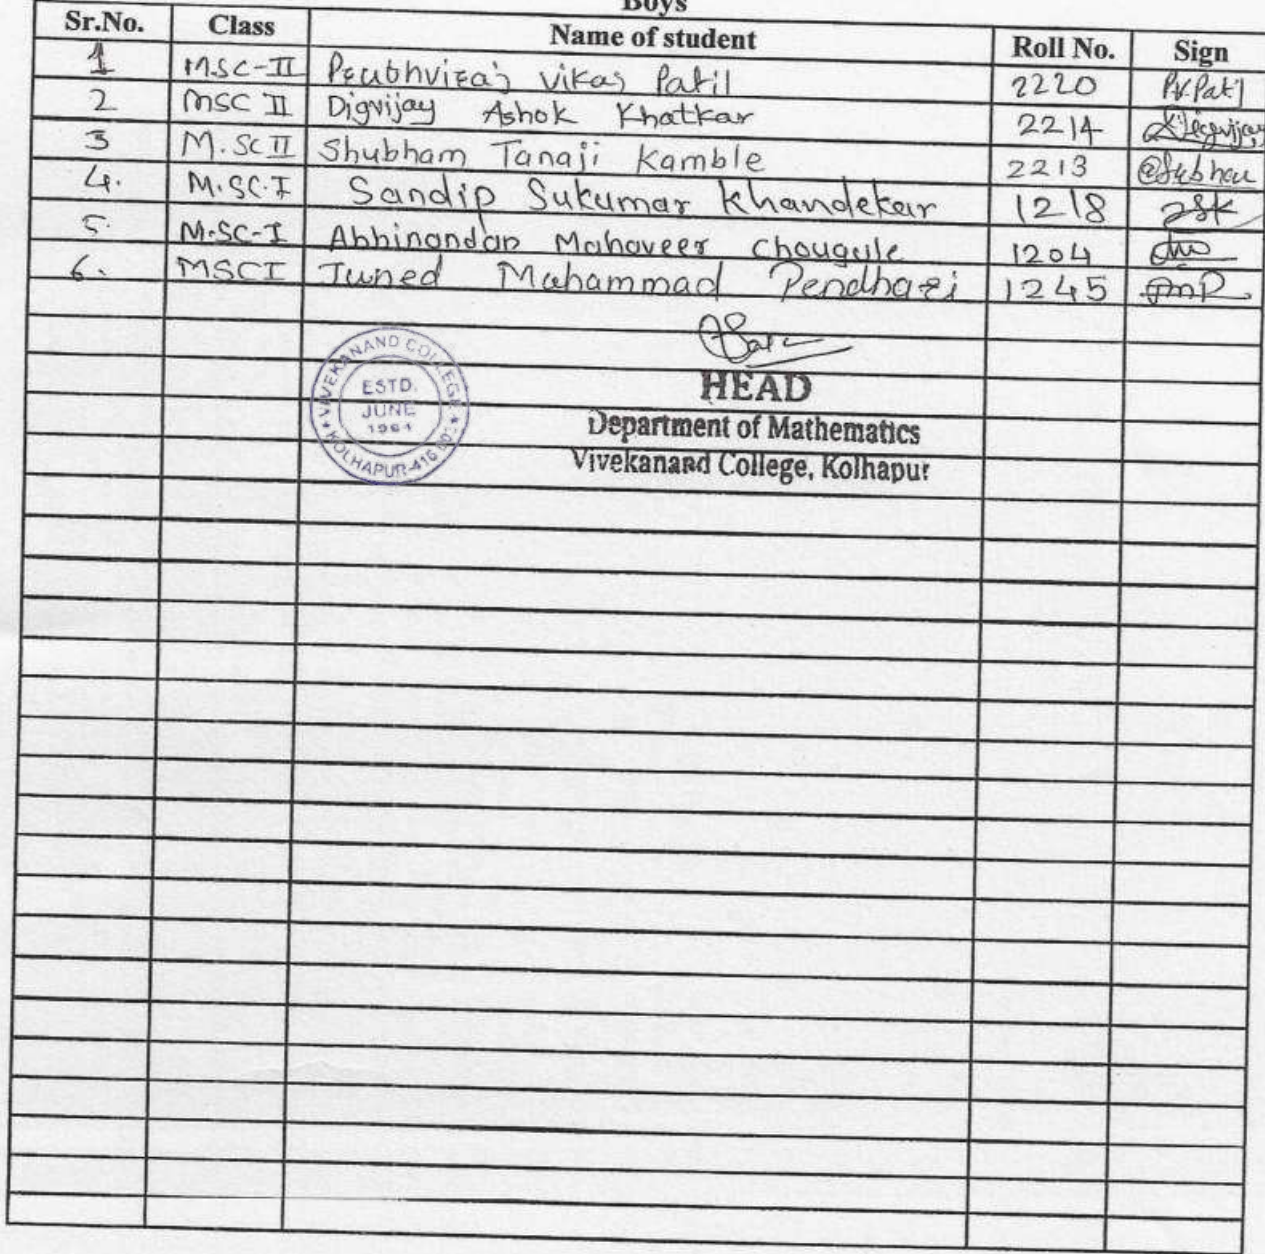 Boys
Sr.No. Class Name of student Roll No. Sign
1 MSC-II Prubhviraj Vikas Patil 2220 P.V.Patil
2 MSC II Digvijay Ashok Khatkar 2214
3 M.Sc II Shubham Tanaji Kamble 2213
4. M.SC.I Sandip Sukumar Khandekar 1218 SSK
5. M.SC-I Abhinandan Mahaveer Chougule 1204
6. MSCI Juned Mahammad Pendhari 1245 JMP
VIVEKANAND COLLEGE
ESTD.
JUNE
1964
KOLHAPUR-416 003
HEAD
Department of Mathematics
Vivekanand College, Kolhapur